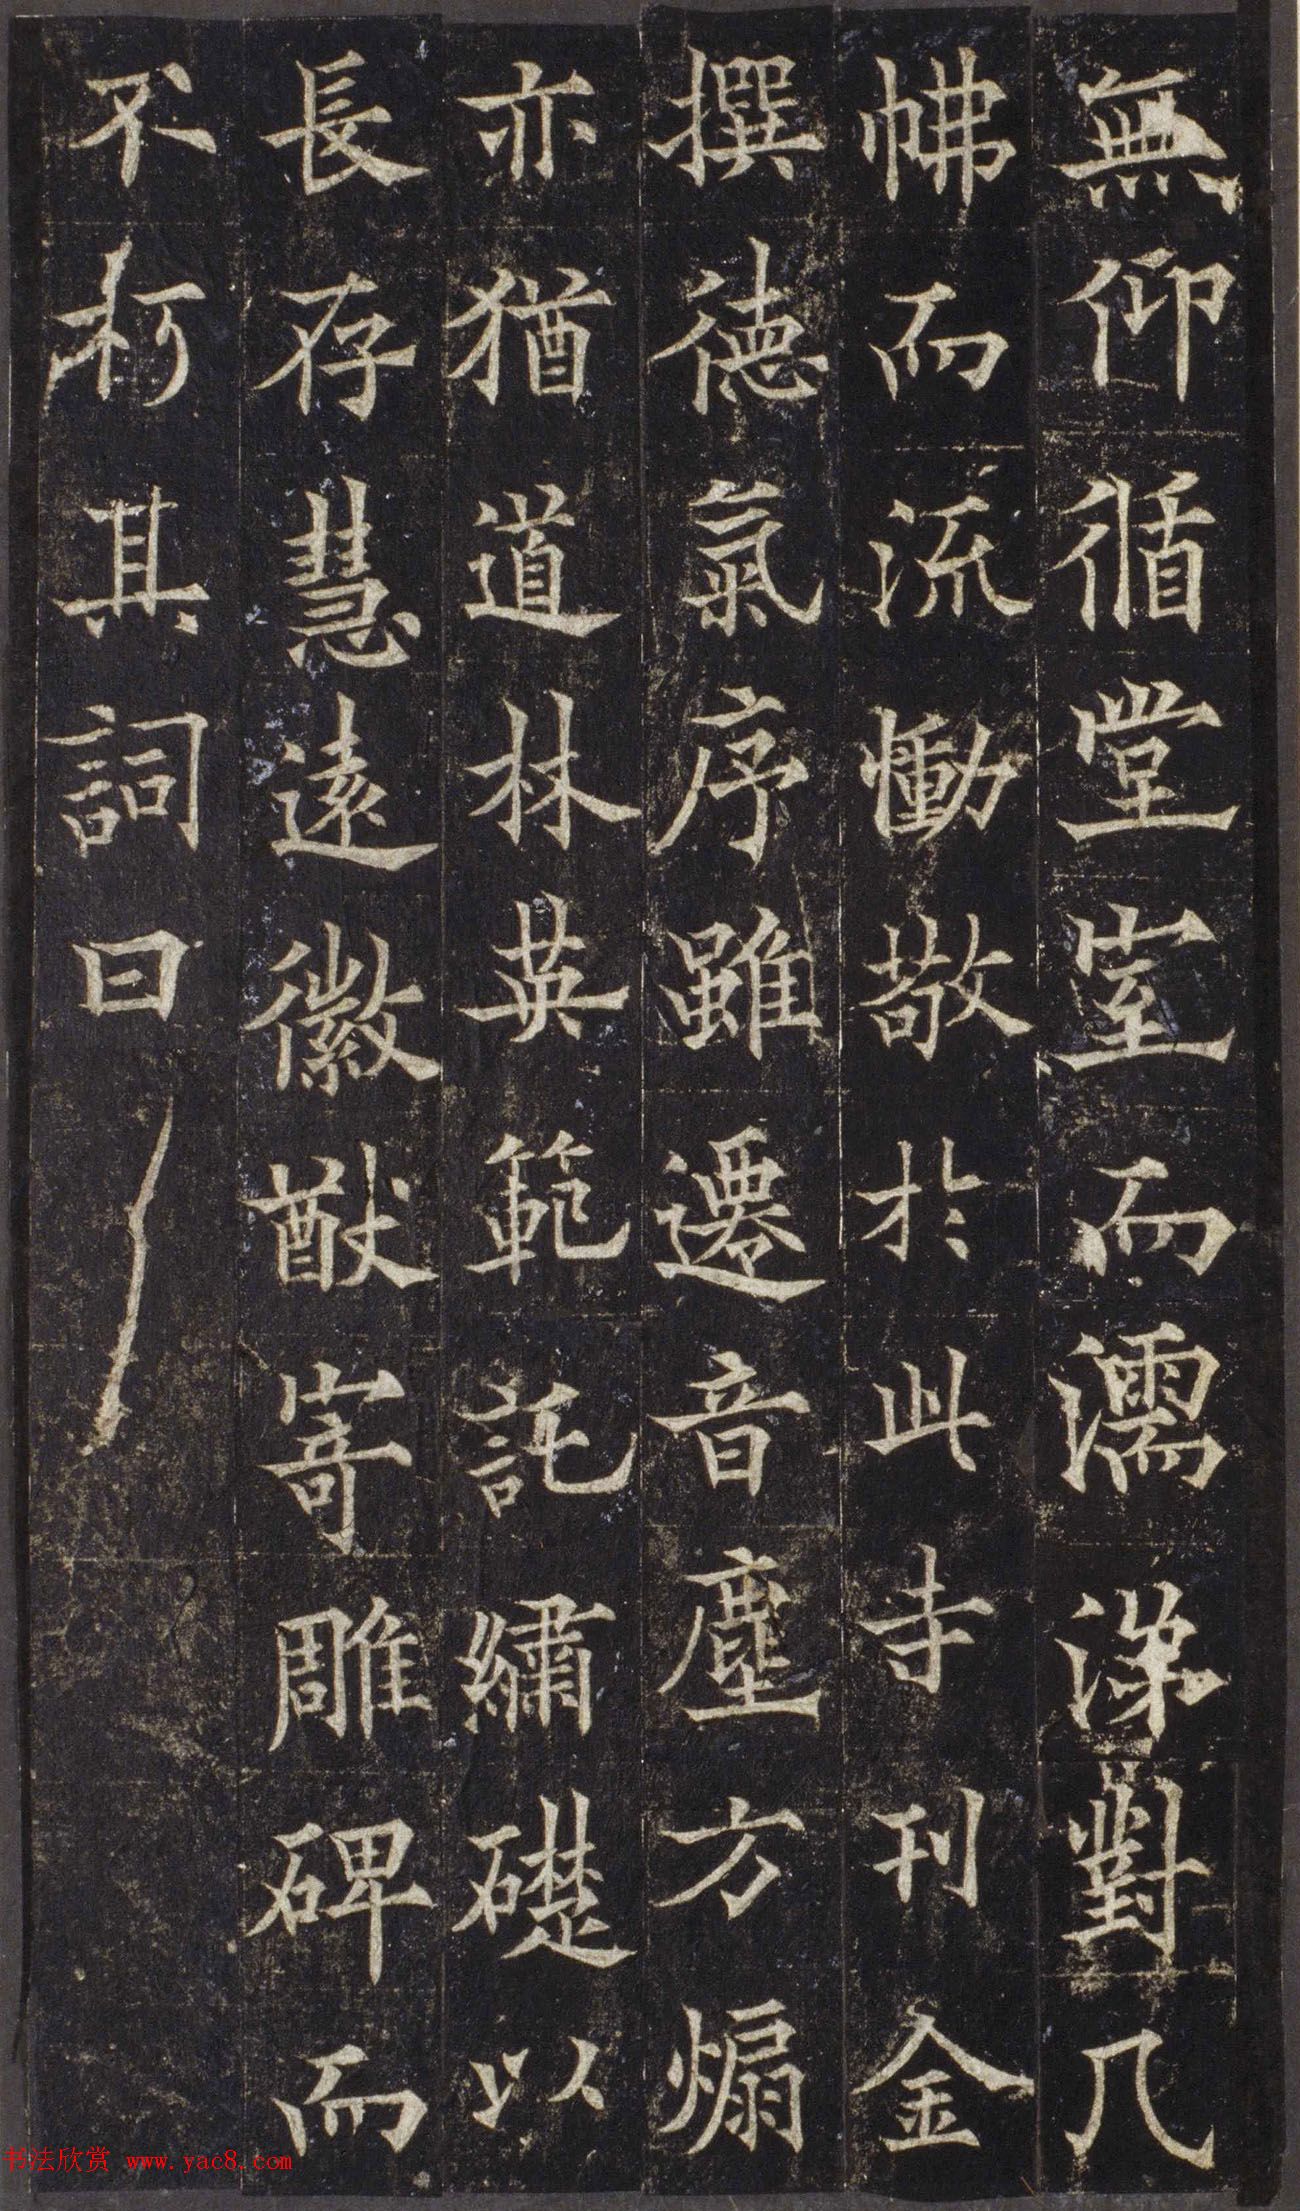 無仰循堂室而濡涕對几
帙而流慟敬於此寺刊金
撰德氣序雖遷音塵方煽
亦猶道林英範託繡礎以
長存慧遠徽猷寄雕碑而
不朽其詞曰
书法欣赏 www.yac8.com